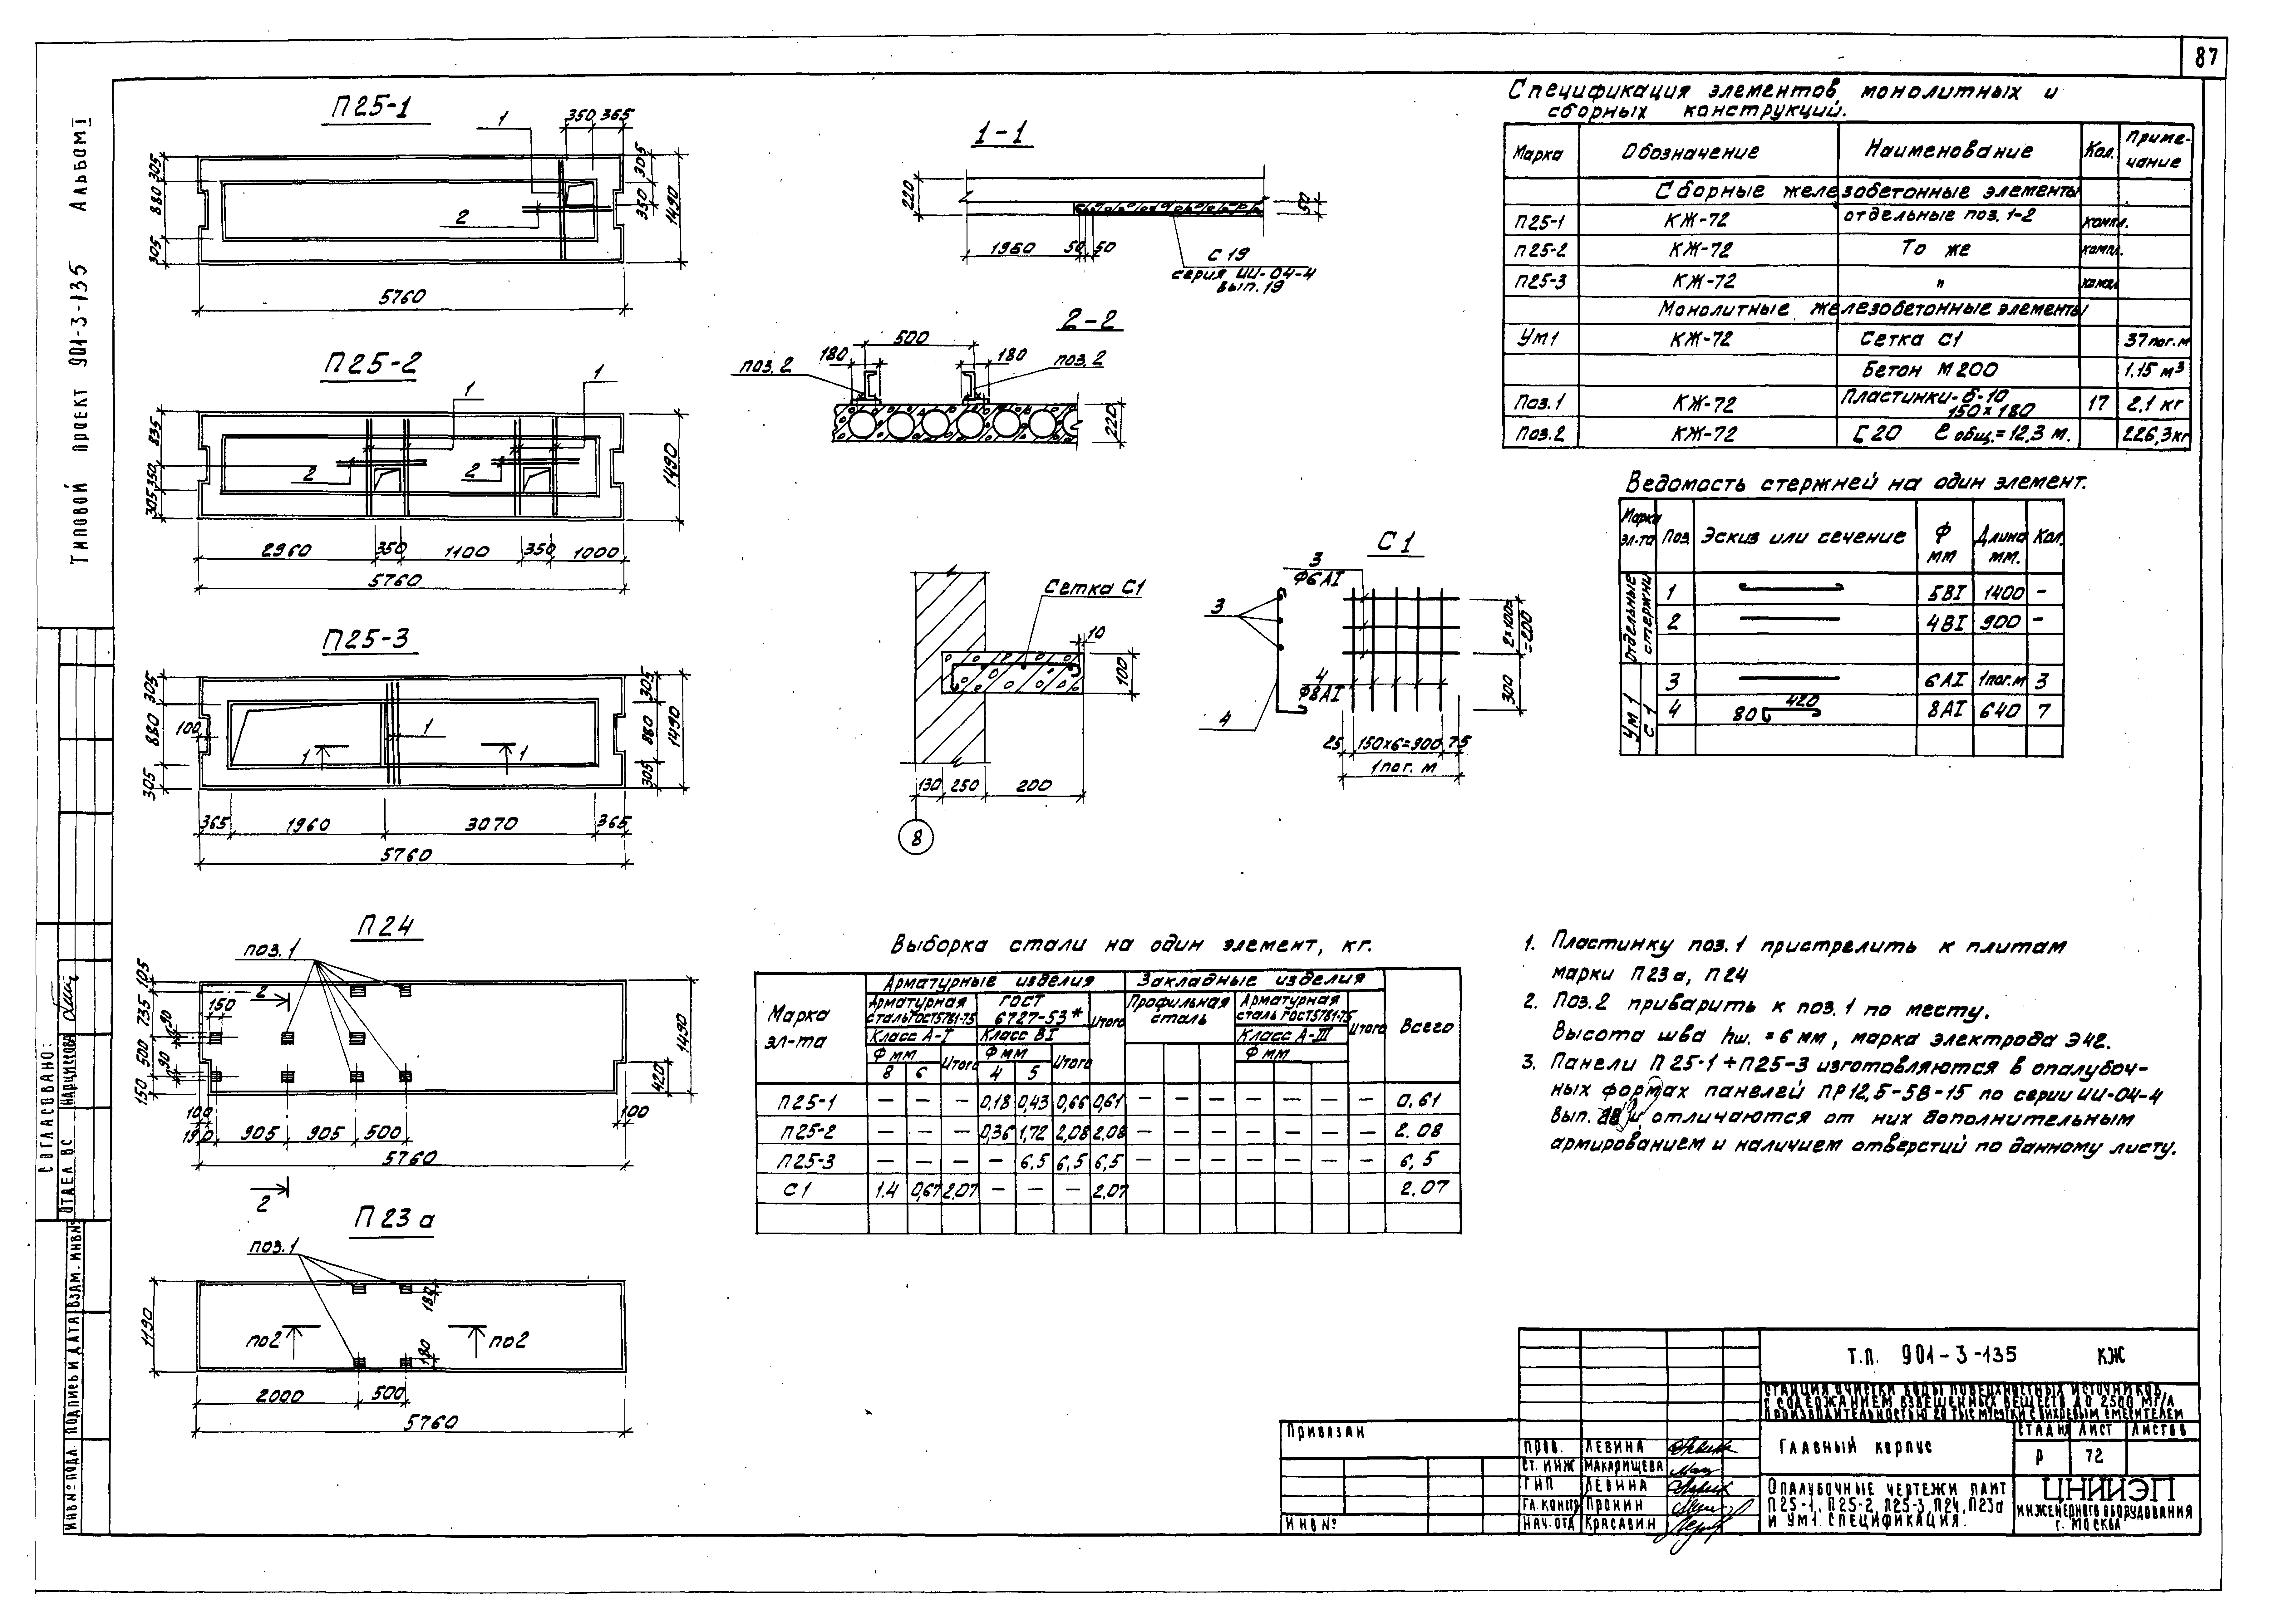 87
Типовой проект 901-3-135 Альбом I
П25-1
1
350 365
305
880
305
2
305
350
1490
5760
П25-2
1
1
835
350
305
2
2
1490
2960 350 1100 350 1000
5760
П25-3
305
880
305
100
1
1
1
305
880
305
1490
365 1960 3070 365
5760
П24
поз.1
105
735
500
150
150
90
90
2
1490
420
100
190 905 905 500
100
5760
2
П23а
поз.1
1190
180
180
по2
по2
2000 500
5760
1-1
220
50
1960 50 50
С19
серия ИИ-04-4
вып.19
2-2
500
180
180
поз.2
поз.2
220
Сетка С1
10
100
130 250 200
8
С1
3
Ф6АI
3
4
Ф8АI
4
2×100=
=200
300
25 150×6=900 75
1пог. м
Спецификация элементов монолитных и
сборных конструкций.
Марка Обозначение Наименование Кол. Приме-
чание
Сборные железобетонные элементы
П25-1 КЖ-72 отдельные поз. 1-2 компл.
П25-2 КЖ-72 То же компл.
П25-3 КЖ-72 "
Монолитные железобетонные элементы
Ум1 КЖ-72 Сетка С1 37пог.м
Бетон М200 1.15 м³
Поз.1 КЖ-72 Пластинки-δ-10
150×180 17 2.1 кг
Поз.2 КЖ-72 [20 ℓ общ.=12,3 м. 226,3кг
Ведомость стержней на один элемент.
Марка
эл-та Поз. Эскиз или сечение Ф
мм Длина
мм. Кол.
Отдельные
стержни
1 5ВI 1400 -
2 4ВI 900 -
Ум 1
С 1
3 6АI 1пог.м 3
4 80 420 8АI 640 7
Выборка стали на один элемент, кг.
Марка
эл-та
Арматурные изделия
Закладные изделия
Всего
Арматурная
сталь ГОСТ5781-75
ГОСТ
6727-53*
Итого
Профильная
сталь
Арматурная
сталь ГОСТ5781-75
Итого
Класс А-I Класс ВI Класс А-III
Ф мм Итого Ф мм Итого Ф мм
8 6 4 5
П25-1 — — — 0,18 0,43 0,66 0,61 — — — — — — — 0,61
П25-2 — — — 0,36 1,72 2,08 2,08 — — — — — — — 2.08
П25-3 — — — — 6,5 6,5 6,5 — — — — — — — 6,5
С1 1.4 0,67 2,07 — — — 2.07 2.07
1. Пластинку поз.1 пристрелить к плитам
марки П23а, П24
2. Поз.2 приварить к поз.1 по месту.
Высота шва hш. = 6 мм, марка электрода Э42.
3. Панели П25-1÷П25-3 изготовляются в опалубоч-
ных формах панелей ПР12,5-58-15 по серии ИИ-04-4
вып. и отличаются от них дополнительным
армированием и наличием отверстий по данному листу.
Согласовано:
Отдел ВС Нарцисова
Инв№ подл. Подпись и дата Взам. инв№
Привязан
Инв№
Т.П. 901-3-135 КЖ
Станция очистки воды поверхностных источников
с содержанием взвешенных веществ до 2500 мг/л
производительностью 20 тыс м³/сутки с вихревым смесителем
Пров. Левина
Ст. инж Макарищева
ГИП Левина
Гл. констр Пронин
Нач. отд Красавин
Главный корпус
Стадия Лист Листов
Р 72
Опалубочные чертежи плит
П25-1, П25-2, П25-3, П24, П23а
и Ум1. Спецификация.
ЦНИИЭП
инженерного оборудования
г. Москва